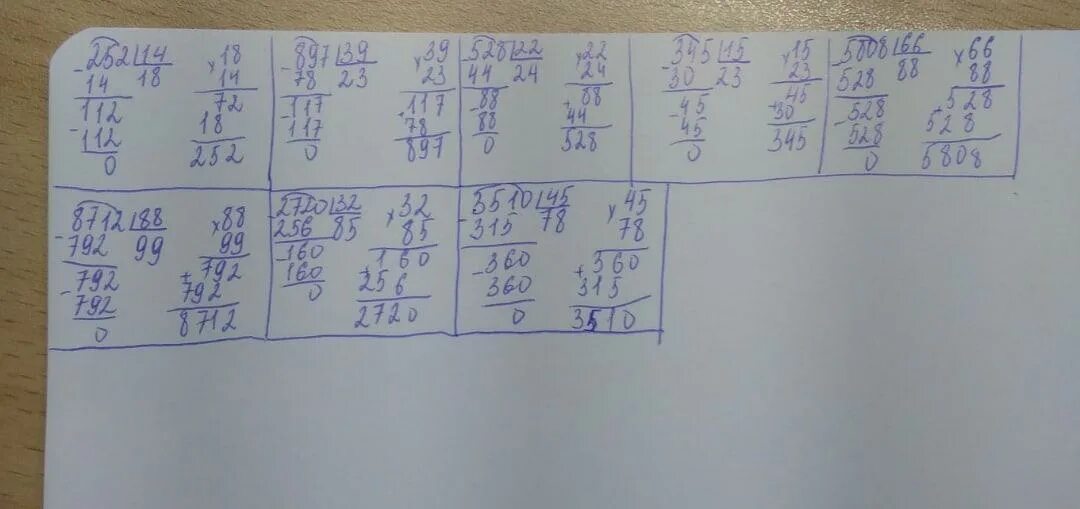 -252|14 ×18
14 18 14
112 72
-112 18
0 252
-897|39 ×39
78 23 23
-117 117
117 +78
0 897
-528|22 ×22
44 24 24
-88 +88
88 44
0 528
-345|15 ×15
30 23 23
-45 +45
45 30
0 345
-5808|66 ×66
528 88 88
-528 +528
528 528
0 5808
-8712|88 ×88
792 99 99
-792 +792
792 792
0 8712
-2720|32 ×32
256 85 85
-160 +160
160 256
0 2720
-3510|45 ×45
315 78 78
-360 +360
360 315
0 3510